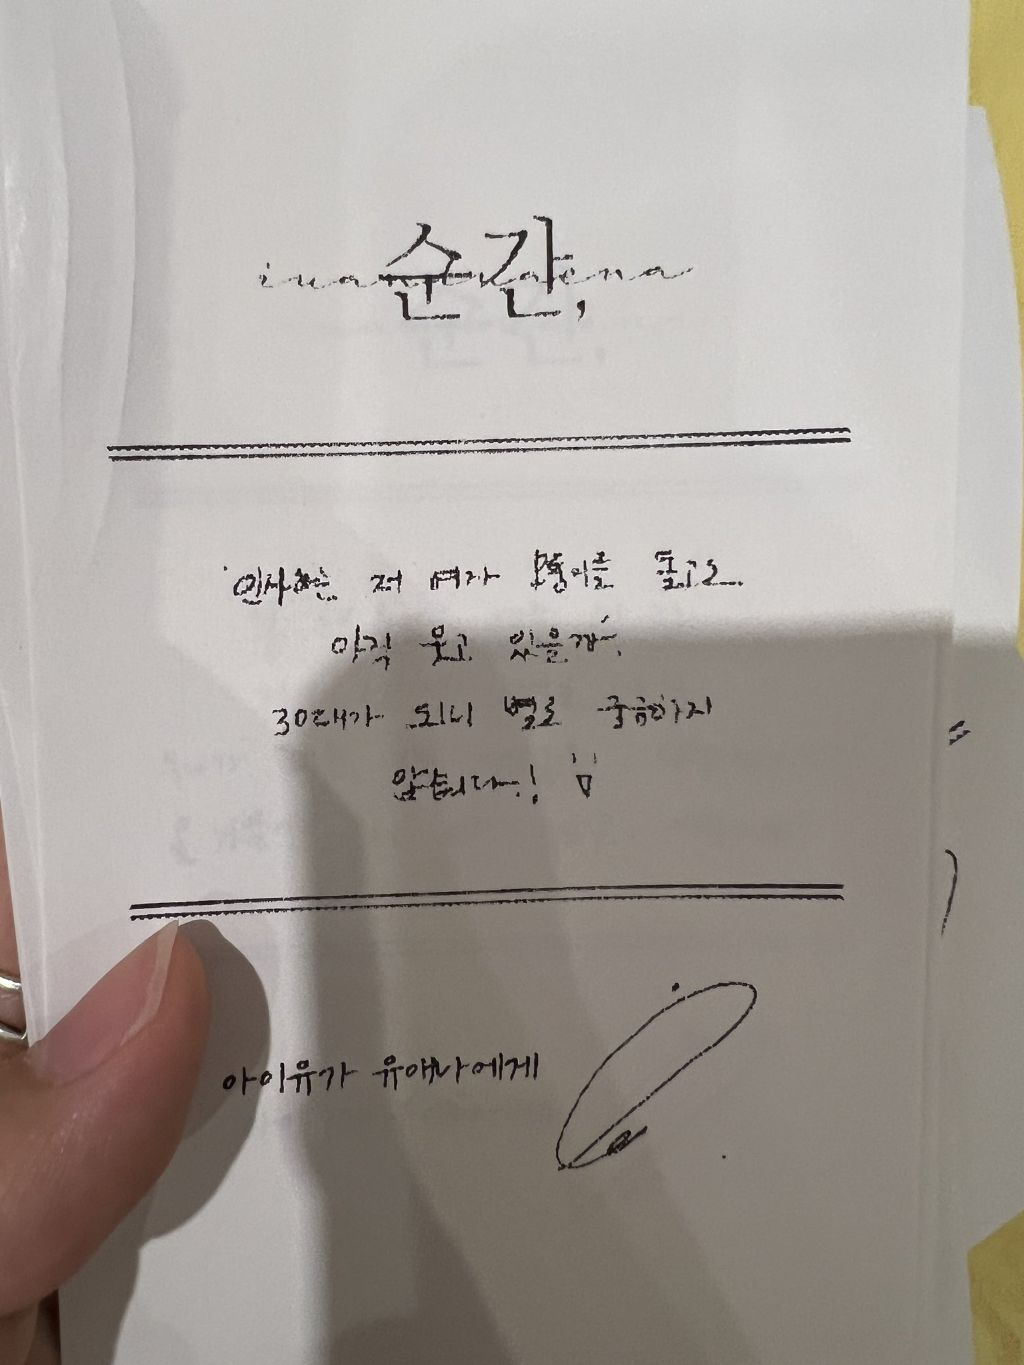 순간,
인사하는 저 여자 모퉁이를 돌고도
아직 웃고 있을까,
30대가 되니 별로 궁금하지
않습니다.!
아이유가 유애나에게